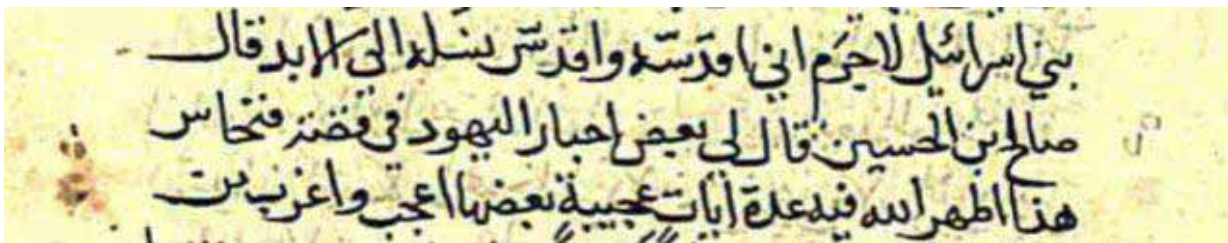 بني اسرائيل لا جرم اني اقدسه واقدس نسله الى الابد قال
صالح بن الحسين قال لي بعض احبار اليهود في قصة فنحاس
هذا اظهر الله فيه عدة ايات عجيبة بعضها اعجب واغرب من